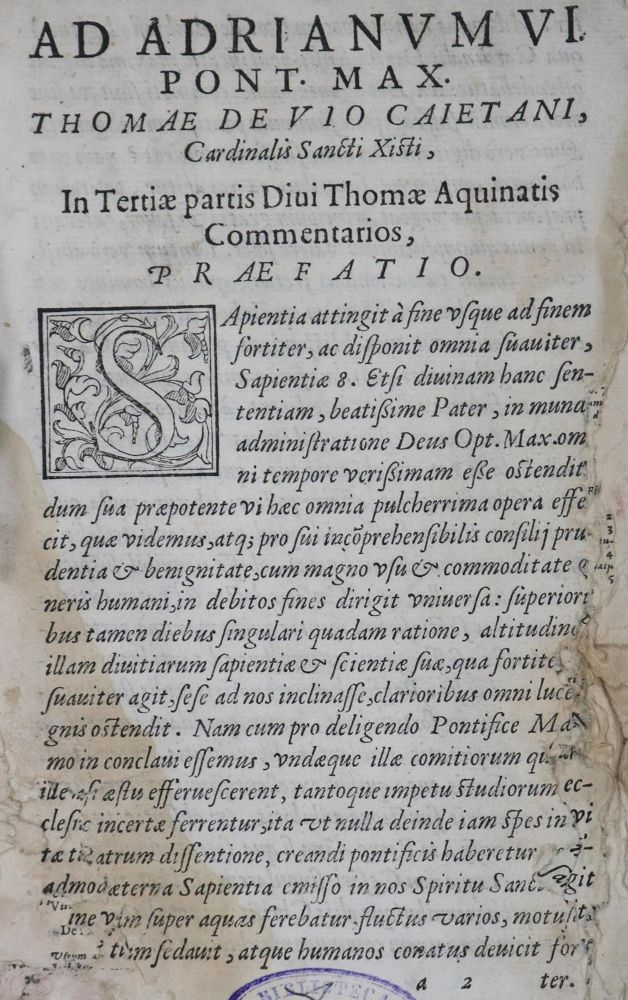 AD ADRIANVM VI.
PONT. MAX.
THOMAE DE VIO CAIETANI,
Cardinalis Sancti Xisti,
In Tertiæ partis Diui Thomæ Aquinatis
Commentarios,
PRAEFATIO.
SApientia attingit à fine vſque ad finem
fortiter, ac diſponit omnia ſuauiter,
Sapientiæ 8. Etſi diuinam hanc ſen-
tentiam, beatißime Pater, in muna
adminiſtratione Deus Opt. Max. om
ni tempore verißimam eße oſtendit
dum ſua præpotente vi hæc omnia pulcherrima opera effe
cit, quæ videmus, atq; pro ſui incõprehenſibilis conſilij pru-
dentia & benignitate, cum magno vſu & commoditate
neris humani, in debitos fines dirigit vniuerſa: ſuperiori
bus tamen diebus ſingulari quadam ratione, altitudin
illam diuitiarum ſapientiæ & ſcientiæ ſuæ, qua fortite
ſuauiter agit, ſeſe ad nos inclinaſſe, clarioribus omni luce
gnis oſtendit. Nam cum pro deligendo Pontifice Ma
mo in conclaui eſſemus, vndæque illæ comitiorum
æſtu efferueſcerent, tantoque impetu ſtudiorum ec-
cleſiæ incertæ ferrentur, ita vt nulla deinde iam ſpes in vi
tæ diſſentione, creandi pontificis haberetur
admodæterna Sapientia emiſſo in nos Spiritu Sanct
ſuper aquas ferebatur fluctus varios, motuſ
ſedauit, atque humanos conatus deuicit for
a 2 ter.
BIBLIOTECA